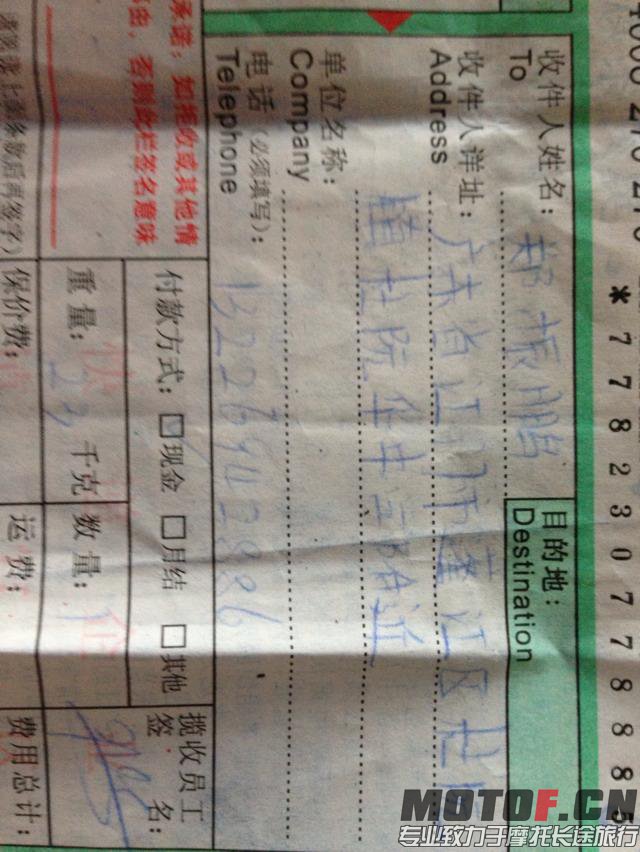 *778230778885
收件人姓名: 郑振鹏
To
目的地:
Destination
收件人详址: 广东省江门市蓬江区杜阮
Address
华
附近
单位名称:
Company
电话 (必须填写): 13226942886
Telephone
承诺: 如拒收或其他情
否则此栏签名意味
付款方式: □现金 □月结 □其他
重量: 23 千克 数量:
揽收员工
签名:
保价费:
运费:
费用总计:
MOTOF.CN
专业致力于摩托长途旅行